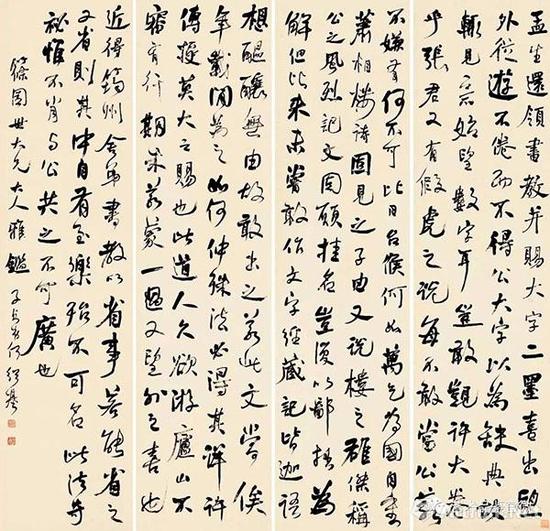 孟生還領書教并賜大字二墨喜出望
外從遊不倦而不得公大字以為缺典
輒見意始望數字耳豈敢覬許大卷
乎張君又有假虎之說每不敢當公言
不嫌有何不可比日台候何如萬乞為國自重
蕭相樓詩固見之子由又說樓之雄傑稱
公之風烈記文固願挂名豈復以鄙拙為
解但比來未嘗敢作文字經藏記皆迦語
想醞釀無由故敢出之若此文當俟
年載間為之如何仲殊法必得其詳許
傳授莫大之賜也此道人久欲游廬山不
審有行期未若蒙一過又望外之喜也
近得筠州舍弟書教以省事若能省之
又省則其中自有至樂殆不可名此法奇
祕惟不肖與公共之不可廣也
篠園世大兄大人雅鑑 子貞弟何紹基